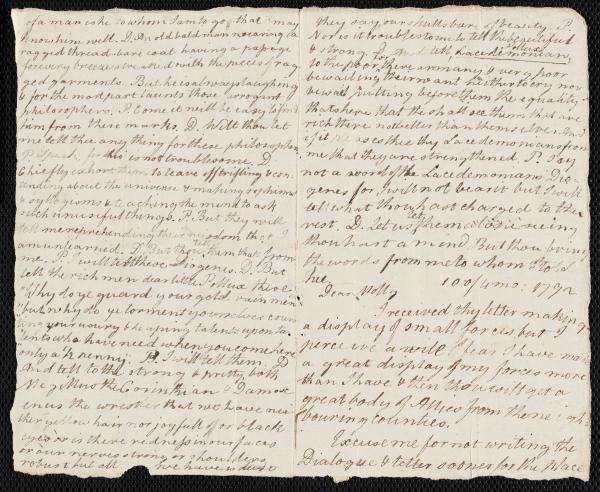 of a man is he to whom I am to go that I may
know him well. D. An old bald man wearing a
ragged thread-bare coat having a passage
for every breeze & walled with the pieces of rag
ged garments. But he is always laughing
& for the most part taunts those arrogant
philosophers. P. Come it will be easy to find
him from these marks. D. Wilt thou let
me tell thee any thing for these philosophers
P. Speak, for this is not troublesome. D.
Chiefly exhort them to leave off trifling & con
tending about the universe & making sophisms
& syllogisms & teaching the mind to ask
such unuseful things. P. But they will
tell me reprehending their wisdom that I
am unlearned. D. But thou tell them that from
me. P. I will tell these Diogenes. D. But
tell the rich men dear little Pollux these
Why do ye guard your gold vain men
but why do ye torment yourselves coun
ting your usury & heaping talents upon ta
lents who have need when you come here
only a penny. P. I will tell them. D.
And tell to the strong & pretty both
Megillus the Corinthian & Damox
enus the wrestler that we have nei
ther yellow hair nor joyfull or black
eyes or is there redness in our faces
or our nerves strong or shoulders
robust but all we have is dust
they say our skulls bare of beauty. P.
Nor is it troublesome to tell the beautiful
& strong. D. And tell Lacedemonian
to the poor, there are many & very poor
bewailing their want neither to cry nor
bewail putting before them the equality
that is here that he shall see them that are
rich there no better than themselves. And
if it please thee the Lacedemonians from
me that they are strengthened. P. Say
not a word of the Lacedemonians Dio
genes for I will not bear it but I will
tell what thou hast charged to the
rest. D. Let us let them alone seeing
thou hast a mind. But thou bring
the words from me to whom I told
thee.
10 of 4 mo: 1792
Dear Molly
I received thy letter making
a display of small forces but I
perceive a wile I fear I have made
a great display of my forces more
than I have & then thou wilt get a
great body of Allies from the neigh
bouring counties.
Excuse me for not writing the
Dialogue & letter sooner for the place